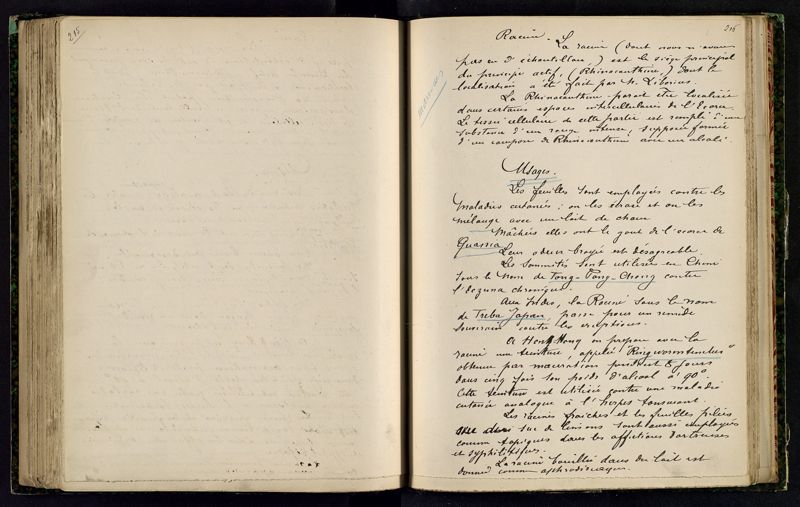 215
216
Racine. La racine (dont nous n'avons
pas eu d'échantillon,) est le siège principal
du principe actif, (Rhinacanthine,) dont la
localisation a été fait par M. Liborius.
La Rhinacanthine parait être localisée
dans certains espaces intercellulaires de l'Ecorce.
Le tissu cellulaire de cette partie est rempli d'une
substance d'un rouge intense, supposée formée
d'un composé de Rhinacanthine avec un alcali.
Usages.
Les feuilles sont employées contre les
maladies cutanées; on les écrase et on les
mélange avec un lait de chaux
Mâchées elles ont le gout de l'ecorce de
Quassia. Leur odeur broyée est désagreable
Les Sommités sont utilisées en Chine
sous le nom de Tong-Pang-Chong contre
l'ekzema chronique.
Aux Indes, la Racine sous le nom
de Treba Japan, passe pour un remède
souverain contre les éruptions.
A Hong Kong on prepare avec la
racine une teinture, appelé
obtenue par maceration pendant 8 jours
dans cinq fois son poids d'alcool à 90°.
Cette teinture est utilisée contre une maladie
cutanée analogue à l'herpes tonsurant.
Les racines fraiches et les feuilles pilées
avec du suc de limons sont aussi employées
comme topiques dans les affections dartreuses
et syphilitiques.
La racine bouillie dans du lait est
donnée comme aphrodisiaque.